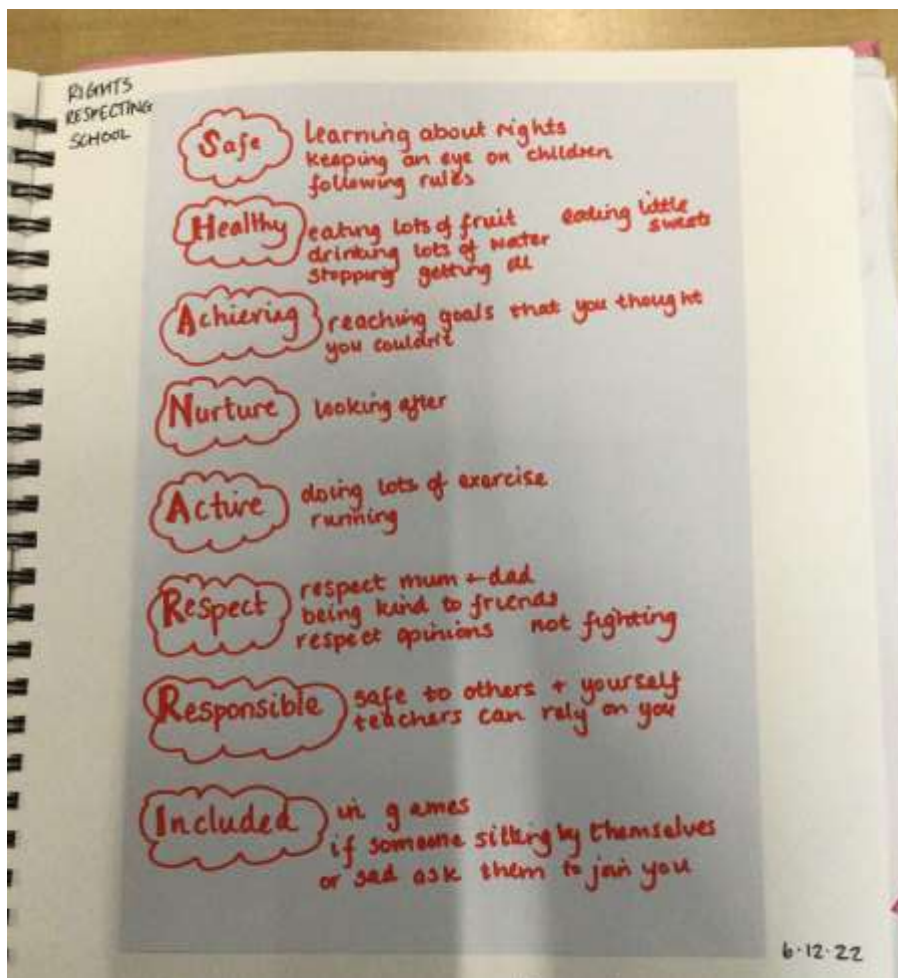 RIGHTS
RESPECTING
SCHOOL
Safe learning about rights
keeping an eye on children
following rules
Healthy eating lots of fruit eating little
sweets
drinking lots of water
stopping getting ill
Achieving reaching goals that you thought
you couldn't
Nurture looking after
Active doing lots of exercise
running
Respect respect mum + dad
being kind to friends
respect opinions not fighting
Responsible safe to others + yourself
teachers can rely on you
Included in games
if someone sitting by themselves
or sad ask them to join you
6.12.22